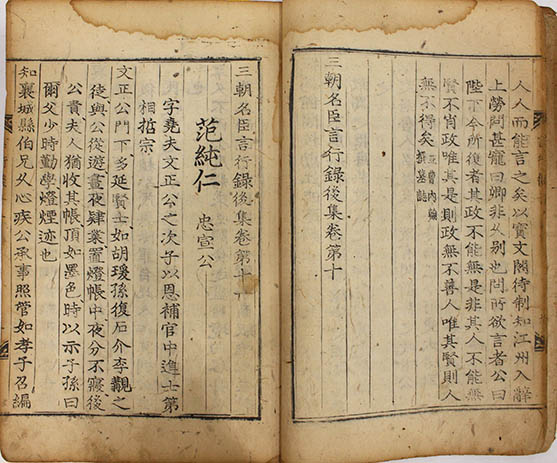 人人而能言之矣以寶文閣待制知江州入辭
上勞問甚寵曰卿非久別也問所欲言者公曰
陛下今所復者其政不能無是非其人不能無
賢不肖政唯其是則政無不善人唯其賢則人
無不得矣 内翰 撰墓誌
三朝名臣言行録後集卷第十
三朝名臣言行錄後集卷第十一
范純仁 忠宣公
字堯夫文正公之次子以恩補官中進士第
相哲宗
文正公門下多延賢士如胡瑗孫復石介李覯之
徒與公從遊晝夜肄業置燈帳中夜分不寢後
公貴夫人猶收其帳頂如墨色時以示子孫曰
爾父少時勤學燈煙迹也
知襄城縣伯兄久心疾公承事照管如孝子召編